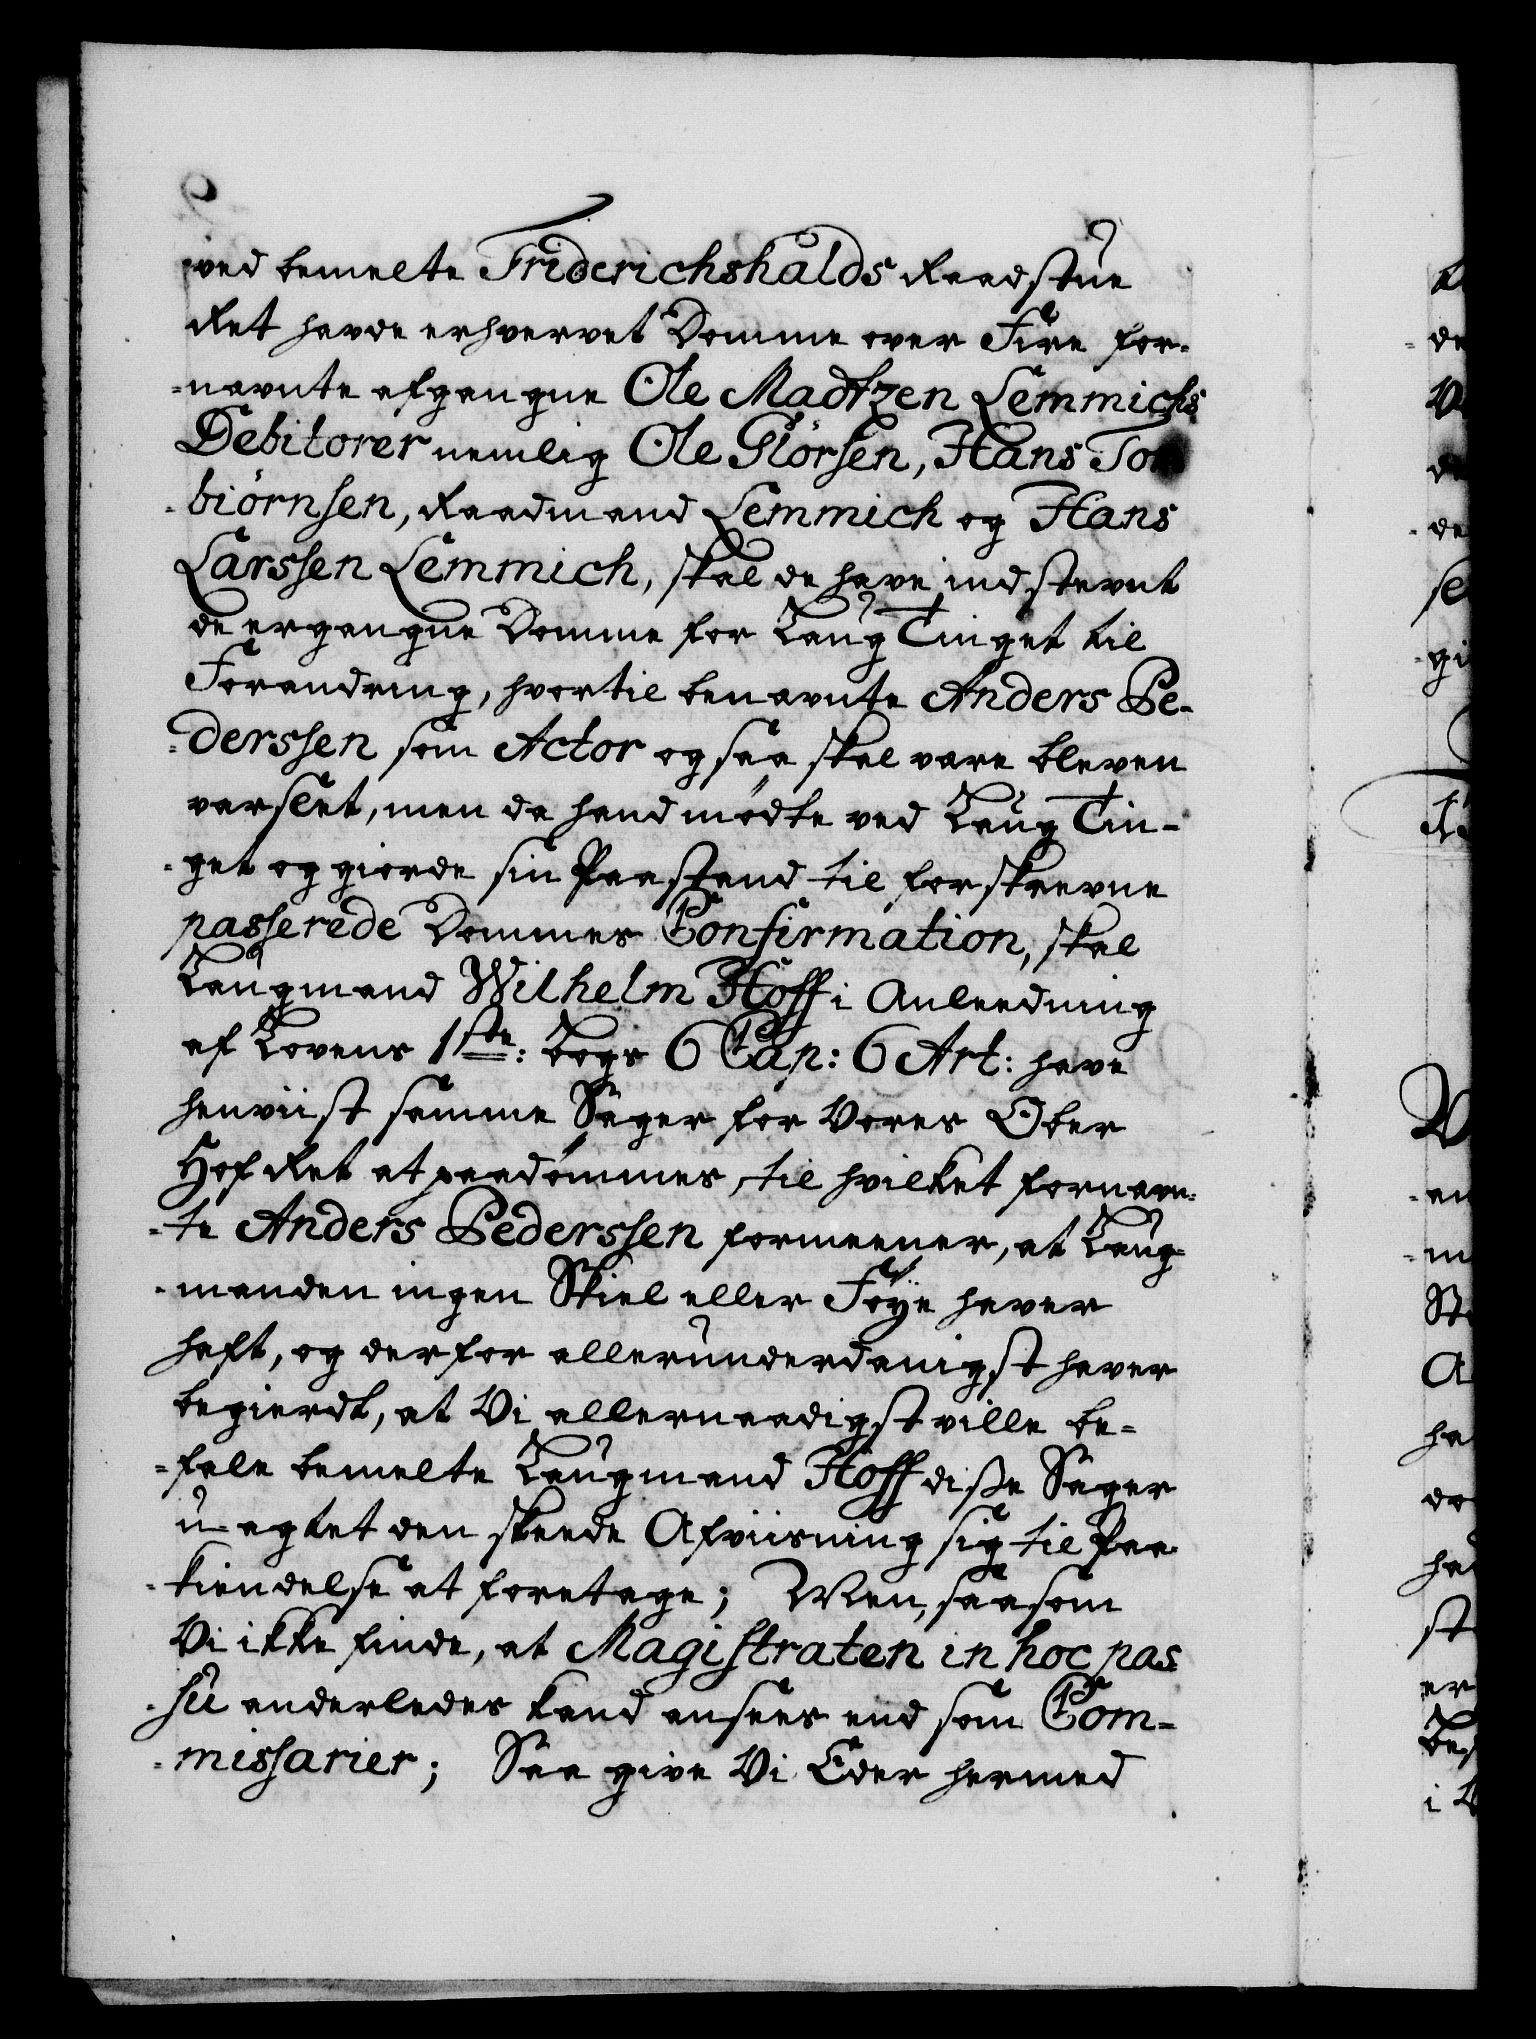 ved bemelte Friderichshalds Raadstue
Ret havde erhvervet Domme over Fire for-
-nævnte afgangne Ole Madtzen Lemmichs
Debitorer nemlig Ole Glörsen, Hans Tor
-biörnsen, Raadmand Lemmich og Hans
Larssen Lemmich, skal de have indstevnt
de ergangne Domme for Laug Tinget til
Forandring, hvortil benævnte Anders Pe-
-derssen som Actor og saa skal være bleven
varslet, men da hand mødte ved Laug Tin-
-get og giorde sin Paastand til forskrevne
passerede Dommes Confirmation, skal
Laugmand Wilhelm Hoff i Anleedning
af Lovens 1ste: Bogs 6 Cap: 6 Art: have
henviist samme Sager for Vores Ober
Hof Ret at paadømmes, til hvilket fornævn-
-te Anders Pederssen formeener, at Laug-
-manden ingen Skiel eller Føye haver
haft, og derfor allerunderdanigst haver
begierdt, at Vi allernaadigst ville be-
-fale bemelte Laugmand Hoff disse Sager
u-agtet den skeede Afviisning sig til Paa
-kiendelse at foretage; Men, saasom
Vi ikke finde, at Magistraten in hoc pas
-su anderledes kand ansees end som Com-
-missarier; Saa give Vi Eder hermed